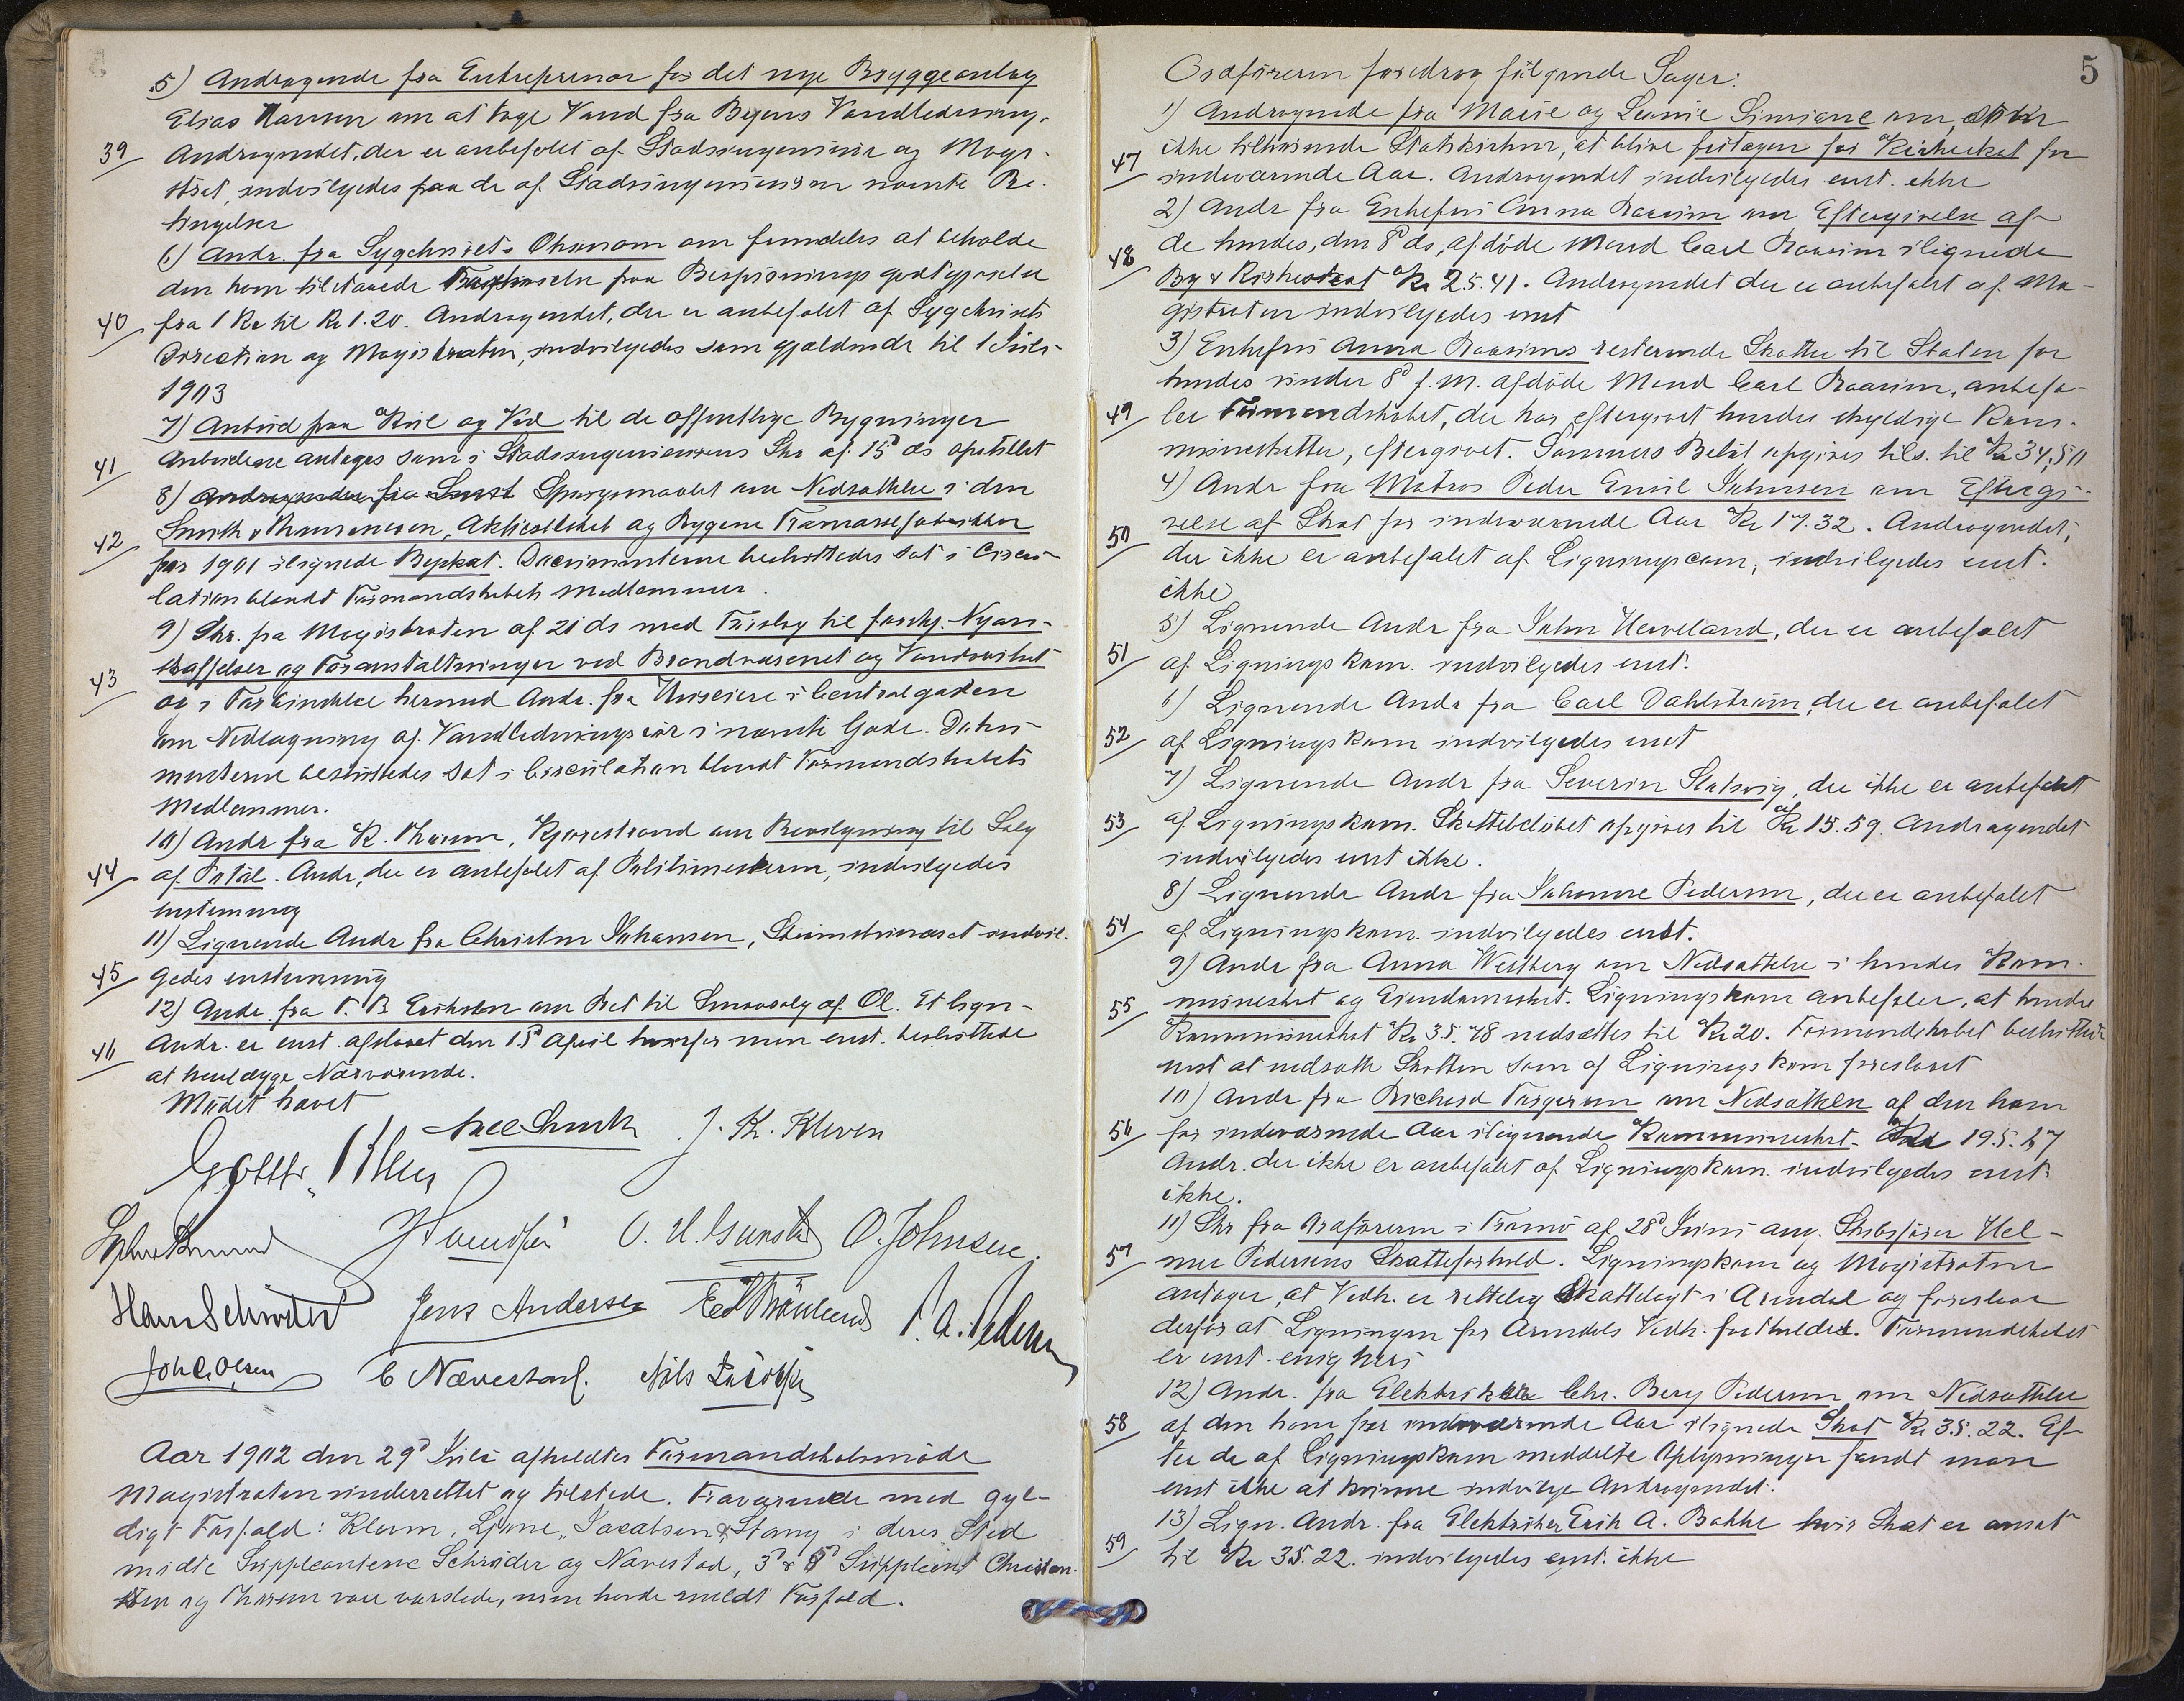 5) Andragende fra Entreprenør for det nye Bryggeanlæg
Elias Hansen om at tage Vand fra Byens Vandledning.
39 Andragendet, der er anbefalet af Stadsingeniør og Magi-
strat, indvilgedes paa de af Stadsingeniøren nævnte Be-
tingelser
6) Andr. fra Sygehusets Økonom om fremdeles at beholde
den ham tilstaaede Forhøielse paa Bespisningsgodtgjørelse
40 fra 1 Kr til Kr 1.20. Andragendet, der er anbefalet af Sygehusets
Direction og Magistraten, indvilgedes som gjældende til 1 Juli
1903
7) Anbud paa Kul og Ved til de offentlige Bygninger
41 Anbudene antages som i Stadsingeniørens Skr af 15d ds opstillet
8) Spørgsmaalet om Nedsættelse i den
42 Smith & Thommesen, Aktieselskab og Bygene Trævarefabrikker
for 1901 ilignede Byskat. Documenterne besluttedes sat i Circu-
lation blandt Formandskabets Medlemmer.
9) Skr. fra Magistraten af 21 ds med Forslag til forskj. Nyan-
43 skaffelser og Foranstaltninger ved Brandvæsenet og Vandverket
og i Forbindelse hermed Andr. fra Huseiere i Centralgaden
om Nedlægning af Vandledningsrør i nævnte Gade. Doku-
menterne besluttedes sat i Circulation blandt Formandskabets
Medlemmer.
10) Andr fra K. Thorsen, Kjørrestrand om Bevilgning til Salg
44 af Øl. Andr, der er anbefalet af Politimesteren, indvilgedes
enstemmig
11) Lignende Andr fra Christen Johansen, indvil-
45 gedes enstemmig
12) Andr. fra T. B. Eriksen om Ret til Smaasalg af Øl. Et lign-
46 Andr. er enst. afslaaet den 15d April hvorfor man enst. besluttede
at henlægge Nærværende.
Mødet hævet
J. K. Kleven
O. H. Gunsted O. Johnsen.
Hans Schrøder Jens Andersen P. A. Pedersen
Joh C. Olsen C Nævestad. Nils
Aar 1902 den 29d Juli afholdtes Formandskabsmøde
Magistraten underrettet og tilstede. Fraværende med gyl-
digt Forfald: Kleven, Ljene, Jacobsen & Stang i deres Sted
mødte Suppleantene Schrøder og Nævestad, 3d & 8d Suppleant Christen-
sen og Thorsen vare varslede, men havde meldt Forfald.
5
Ordføreren foredrog følgende Sager:
1) Andragende fra Marie og Leonie Simiane om, som
47 ikke tilhørende Statskirken, at blive fritagen for Kirkeskat for
indeværende Aar. Andragendet indvilgedes enst. ikke
2) Andr fra Enkefru Anna Roarsim om Eftergivelse af
48 de hendes, den 8d ds, afdøde Mand Carl Roarsim ilignede
By & Kirkeskat Kr 25.41. Andragendet der er anbefalet af Ma-
gistraten indvilgedes enst
3) Enkefru Anna Roarsims resterende Skatter til Staten for
hendes under 8d f. M. afdøde Mand Carl Roarsim, anbefa-
49 ler Formandskabet, der har eftergivet hendes skyldige Kom-
muneskatter, eftergivet. Sammes Beløb opgives tils. til Kr 34,50
4) Andr fra Matros Peder Emil Johnsen om Eftergi-
50 velse af Skat for indeværende Aar Kr 17.32. Andragendet,
der ikke er anbefalet af Ligningscom, indvilgedes enst.
ikke
5) Lignende Andr fra John Herveland, der er anbefalet
51 af Ligningskom. indvilgedes enst.
6) Lignende Andr fra Carl Dahlstrøm, der er anbefalet
52 af Ligningskom indvilgedes enst
7) Lignende Andr fra Severin Slotsvig, der ikke er anbefalet
53 af Ligningskom. Skattebeløbet opgives til Kr 15.59. Andragendet
indvilgedes enst ikke.
8) Lignende Andr fra Johanne Pedersen, der er anbefalet
54 af Ligningskom. indvilgedes enst.
9) Andr fra Anna Westberg om Nedsættelse i hendes Kom-
55 muneskat og Eiendomsskat. Ligningskom anbefaler, at hendes
Kommuneskat Kr 35.78 nedsættes til Kr 20. Formandskabet besluttede
enst at nedsætte Skatten som af Ligningskom foreslaaet
10) Andr fra Richard Torgersen om Nedsættelse af den ham
56 for indeværende Aar ilignende Kommuneskat Kr 195.27
Andr. der ikke er anbefalet af Ligningskom. indvilgedes enst.
ikke.
11) Skr fra Ordføreren i Tromø af 28d Juni ang. Skibsfører Hel-
57 mer Pedersens Skatteforhold. Ligningskom og Magistraten
antager, at Vedk. er rettelig Skattelagt i Arendal og foreslaar
derfor at Ligningen for Arendals Vedk. fastholdes. Formandskabet
er enst. enig heri
12) Andr. fra Elektriker Chr. Berg Pedersen om Nedsættelse
58 af den ham for indeværende Aar ilignede Skat Kr 35.22. Ef-
ter de af Ligningskom meddelte Oplysninger fandt man
enst ikke at kunne indvilge Andragendet.
13) Lign. Andr. fra Elektriker Erik A. Bakke hvis Skat er ansat
59 til Kr 35.22. indvilgedes enst. ikke